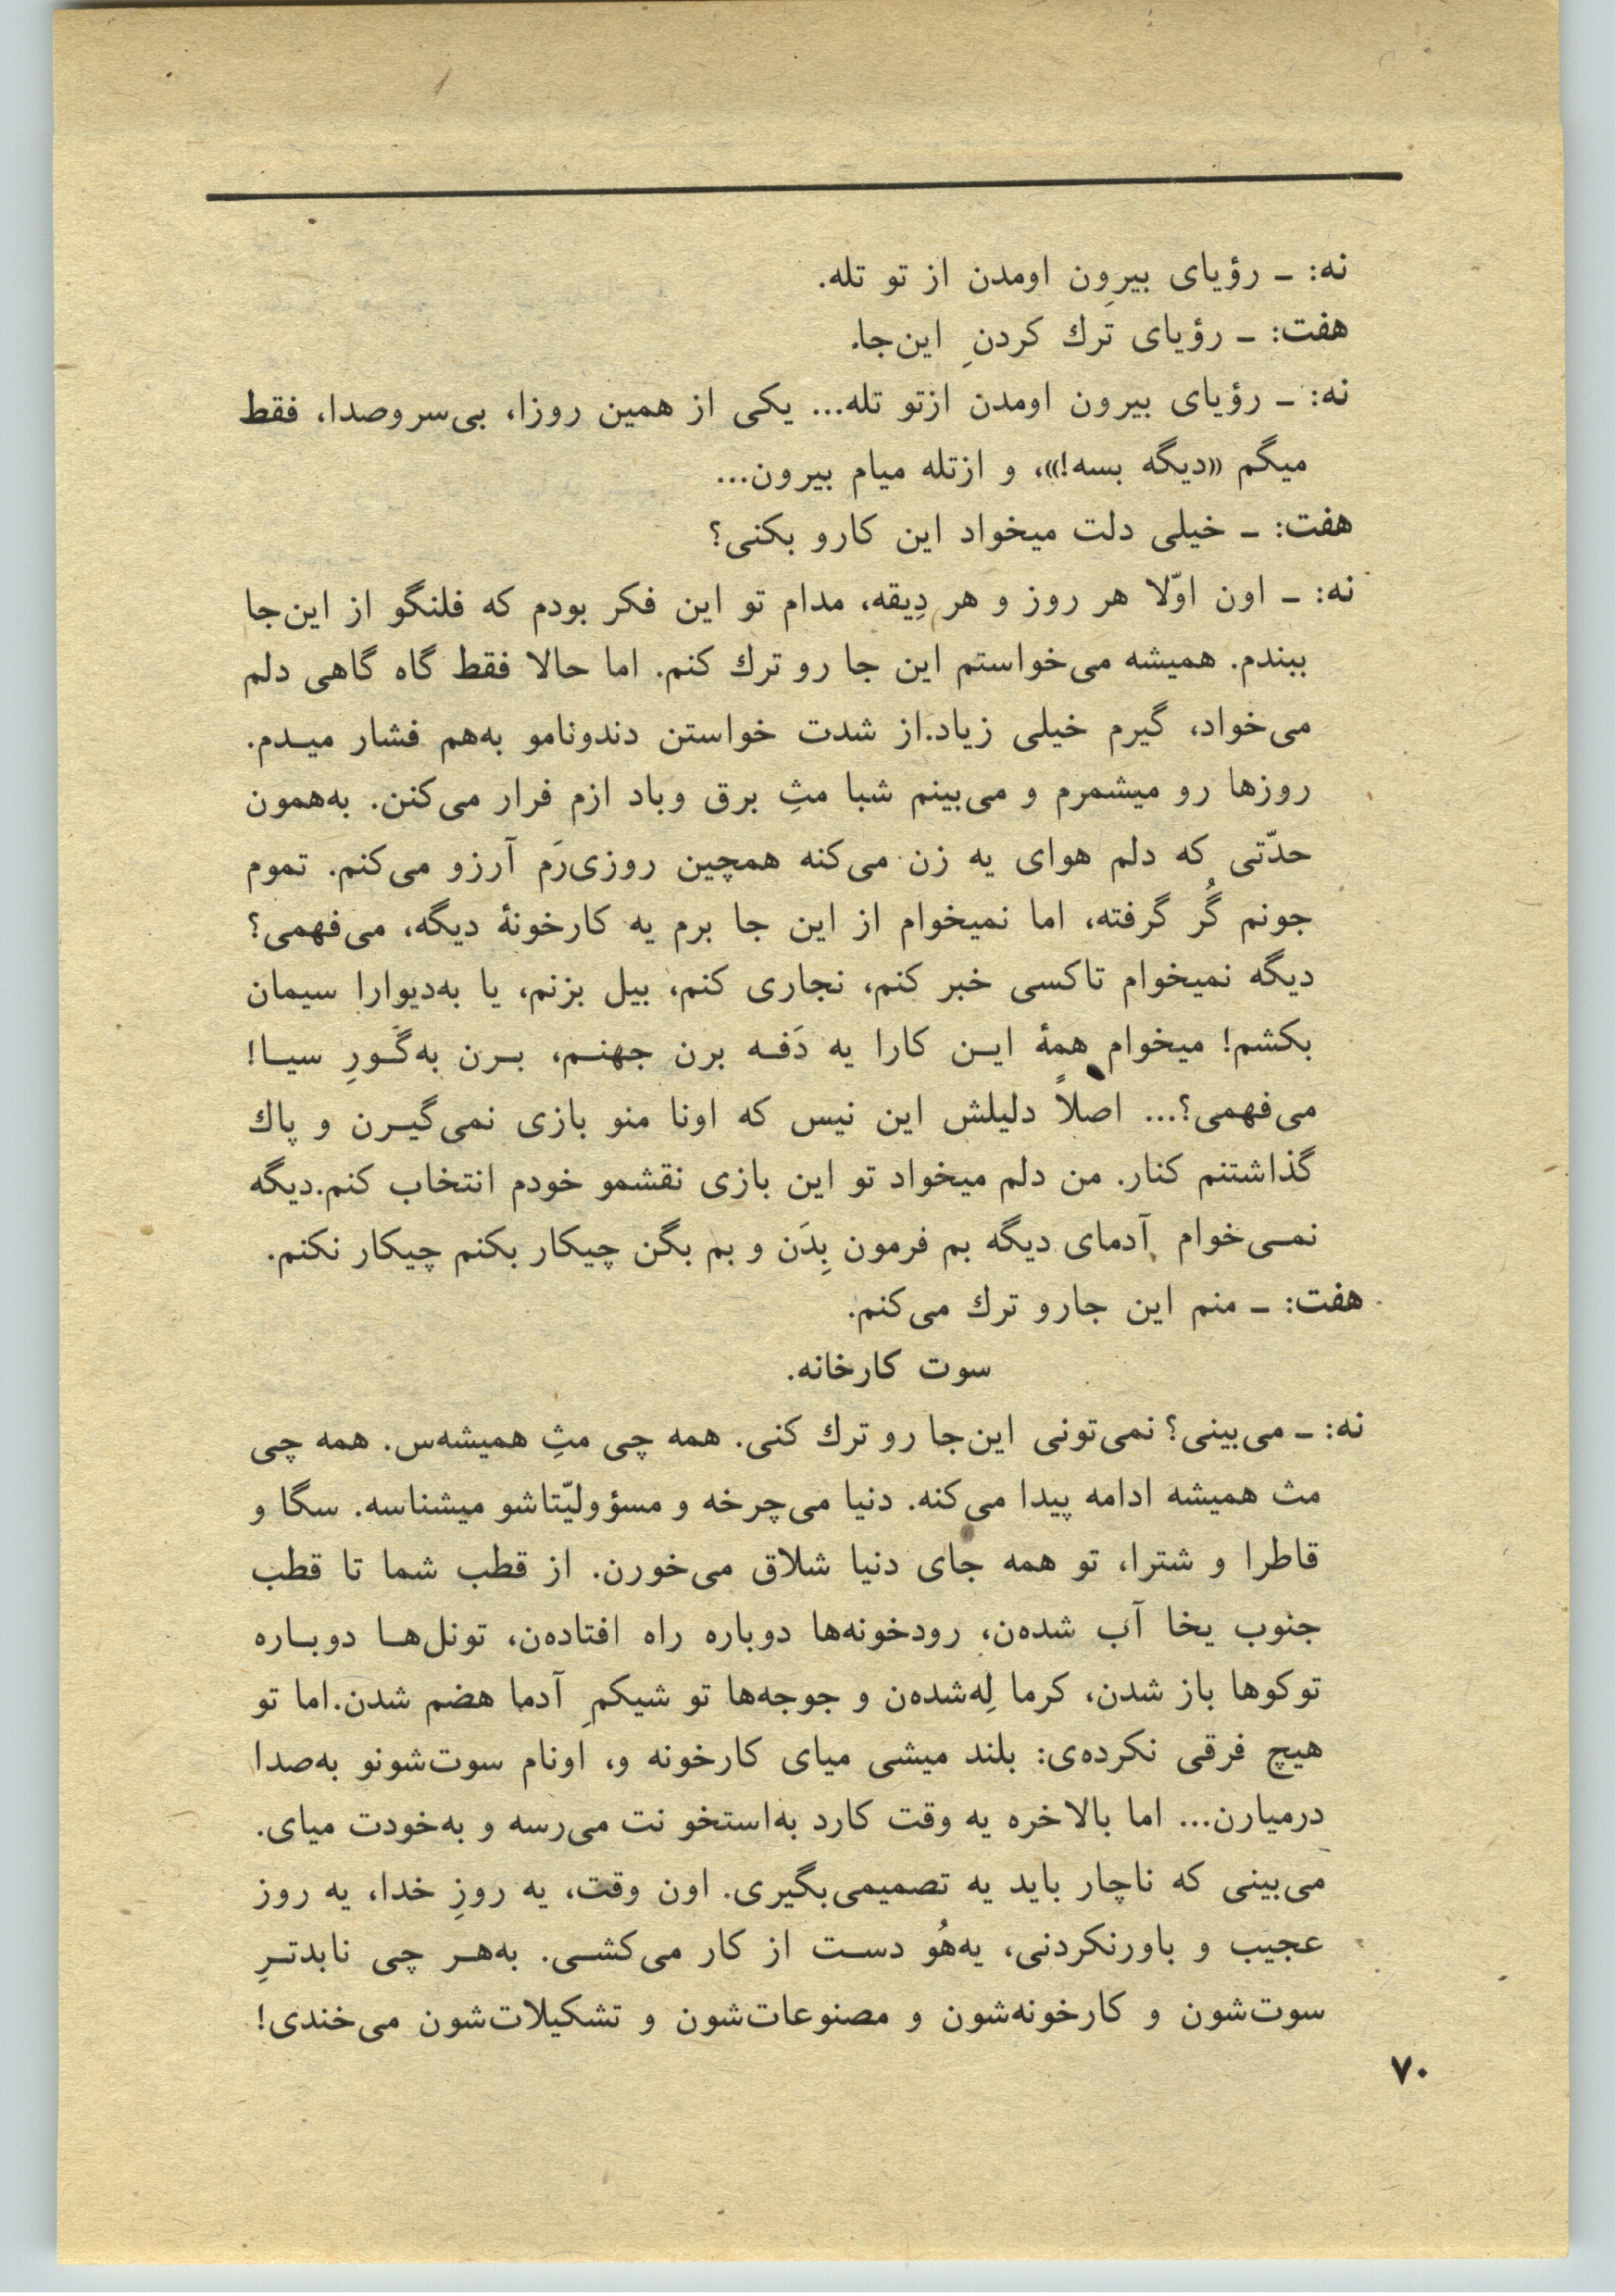 نه: ـ رؤیای بیرون اومدن از تو تله.
هفت: ـ رؤیای تَرك كردنِ این‌جا.
نه: ـ رؤیای بیرون اومدن ازتو تله... یکی از همین روزا، بی‌سروصدا، فقط
میگم «دیگه بسه!»، و ازتله میام بیرون...
هفت: ـ خیلی دلت میخواد این کارو بکنی؟
نه: ـ اون اوّلا هر روز و هر دِیقه، مدام تو این فکر بودم که فلنگو از این‌جا
ببندم. همیشه می‌خواستم این جا رو ترك کنم. اما حالا فقط گاه گاهی دلم
می‌خواد، گیرم خیلی زیاد.از شدت خواستن دندونامو به‌هم فشار میـدم.
روزها رو میشمرم و می‌بینم شبا مثِ برق وباد ازم فرار می‌کنن. به‌همون
حدّتی که دلم هوای یه زن می‌کنه همچین روزی‌رَم آرزو می‌کنم. تموم
جونم گُر گرفته، اما نمیخوام از این جا برم یه کارخونهٔ دیگه، می‌فهمی؟
دیگه نمیخوام تاکسی خبر کنم، نجاری کنم، بیل بزنم، یا به‌دیوارا سیمان
بکشم! میخوام همهٔ ایـن کارا یه دَفـه برن جهنـم، بـرن به‌گـورِ سیـا!
می‌فهمی؟... اصلاً دلیلش این نیس که اونا منو بازی نمی‌گیـرن و پاك
گذاشتنم کنار. من دلم میخواد تو این بازی نقشمو خودم انتخاب کنم.دیگه
نمـی‌خوام آدمای دیگه بم فرمون بِدَن و بم بگن چیکار بکنم چیکار نکنم.
هفت: ـ منم این جارو ترك می‌کنم.
سوت کارخانه.
نه: ـ می‌بینی؟ نمی‌تونی این‌جا رو ترك کنی. همه چی مثِ همیشه‌س. همه چی
مث همیشه ادامه پیدا می‌کنه. دنیا می‌چرخه و مسؤولیّتاشو میشناسه. سگا و
قاطرا و شترا، تو همه جای دنیا شلاق می‌خورن. از قطب شما تا قطب
جنوب یخا آب شده‌ن، رودخونه‌ها دوباره راه افتاده‌ن، تونل‌هـا دوبـاره
توکوها باز شدن، کرما لِه‌شده‌ن و جوجه‌ها تو شیکمِ آدما هضم شدن.اما تو
هیچ فرقی نکرده‌ی: بلند میشی میای کارخونه و، اونام سوت‌شونو به‌صدا
درمیارن... اما بالاخره یه وقت کارد به‌استخو نت می‌رسه و به‌خودت میای.
می‌بینی که ناچار باید یه تصمیمی‌بگیری. اون وقت، یه روزِ خدا، یه روز
عجیب و باورنکردنی، یه‌هُو دسـت از کار می‌کشـی. به‌هـر چی نابدتـرِ
سوت‌شون و کارخونه‌شون و مصنوعات‌شون و تشکیلات‌شون می‌خندی!
۷۰